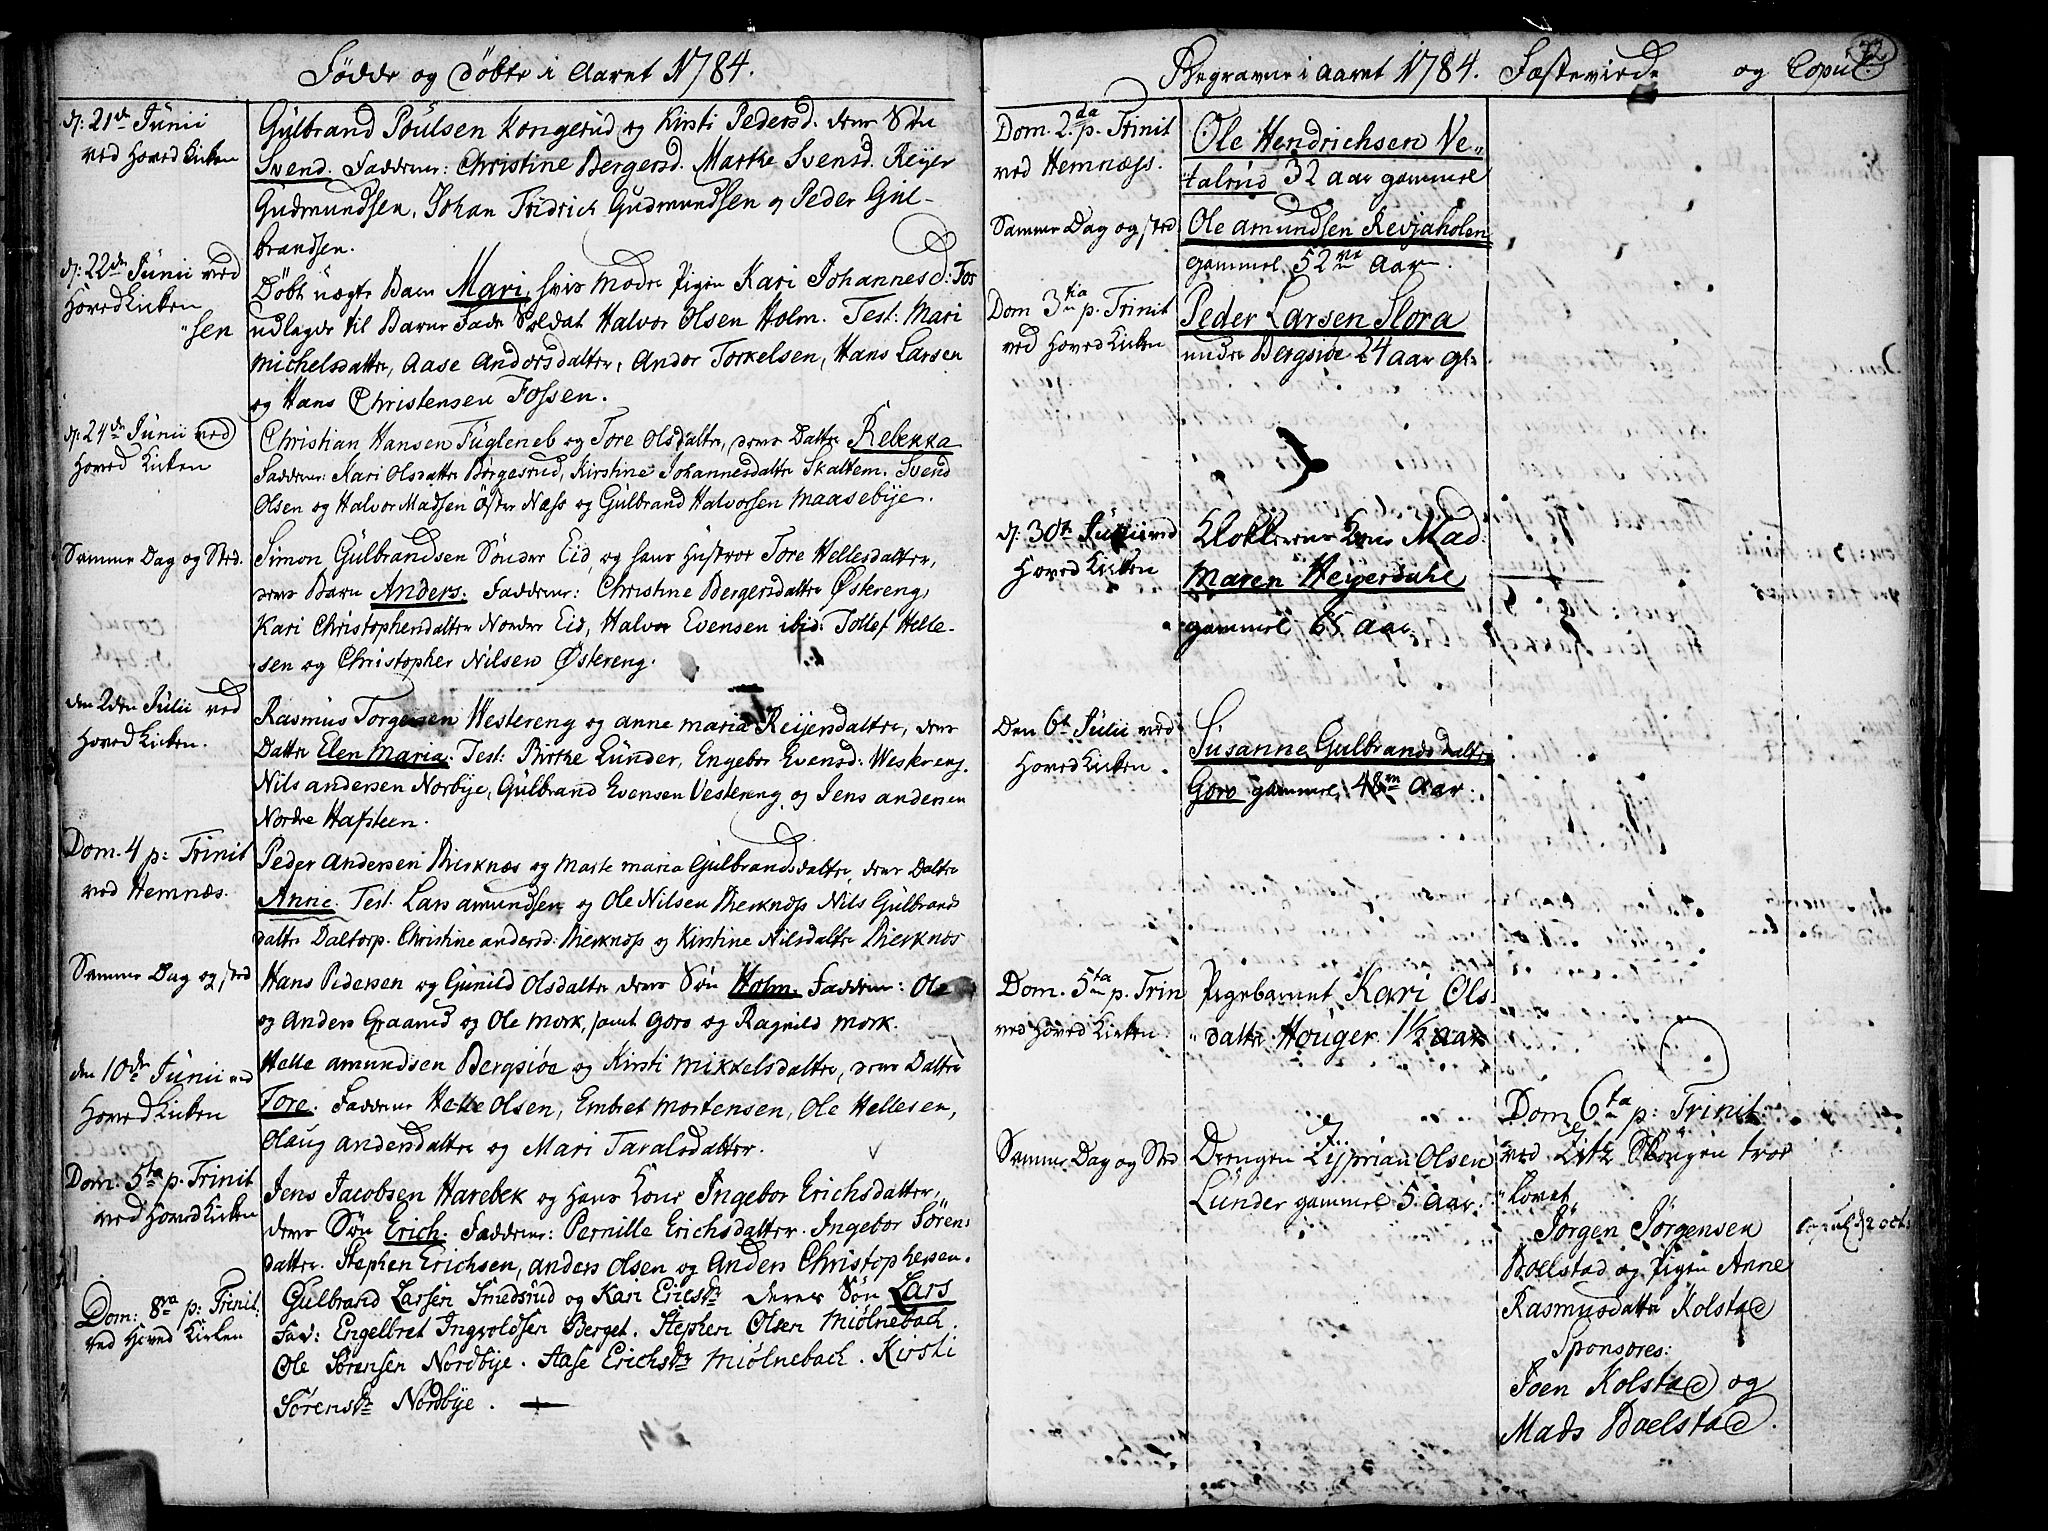 Fødde og døbte i Aaret 1784.
d: 21de Junii
ved Hoved Kirken
Gulbrand Poulsen Kongerud og Kirsti Pedersd. deres Søn
Svend. Fadderne: Christine Bergersd. Marthe Svensd. Reijer
Gudmundsen, Johan Fridrich Gudmundsen og Peder Gul-
brandsen.
d: 22de Junii ved
Hoved Kirken
Døbt uægte Barn Mari, hvis Moder Pigen Kari Johannesd: Fos
"sen
udlagde til Barne Fader Soldat Halvor Olsen Holm. Test: Mari
Michelsdatter, Aase Andorsdatter, Andor Torkelsen, Hans Larsen
og Hans Christensen Fossen.
d: 24de Junii ved
Hoved Kirken
Christian Hansen Fugleneb og Tore Olsdatter, deres Datter Rebekka
Fadderne: Kari Olsdatter Børgesrud, Kirstine Johannesdatter Skaltem. Svend
Olsen og Halvor Madsen Øster Næss og Gulbrand Halvorsen Maasebye.
Samme Dag og Sted.
Simon Gulbrandsen Søndre Eid og hans Hustroe Tore Hellesdatter,
deres Barn Anders. Fadderne: Christine Bergersdatter Østereng,
Kari Christophersdatter Nordre Eid, Halvor Evensen ibid: Tollef Helle-
sen og Christopher Nilsen Østereng.
den 2den Julii ved
Hoved Kirken.
Rasmus Torgersen Westereng og Anne Maria Reijersdatter, deres
Datter Elen Maria. Test: Birthe Lunder, Engebor Evensd: Westereng.
Nils Andersen Norbye, Gulbrand Evensen Vestereng og Jens Andersen
Nordre Hafsteen.
Dom. 4 p: Trinit
ved Hemnæs.
Peder Andersen Bierknæs og Marte Maria Gulbrandsdatter, deres Datter
Anne. Test. Lars Amundsen og Ole Nilsen Bierknæs Nils Gulbrands
datter Daltorp. Christine Andersd: Bierknæs og Kirstine Nilsdatter Bierknæs
Samme Dag og sted
Hans Pedersen og Gunild Olsdatter deres Søn Holm. Fadderne: Ole
og Anders Graarud og Ole Mork, samt Goro og Ragnild Mork.
den 10de Junii ved
Hoved Kirken
Helle Amundsen Bergsiøe og Kirsti Mikkelsdatter, deres Datter
Tore. Fadderne Helle Olsen, Embret Mortensen, Ole Hellesen,
Olaug Andersdatter og Mari Taralsdatter.
Dom: 5ta p. Trinit
ved Hoved Kirken
Jens Jacobsen Harebek og hans Kone Ingebor Erichsdatter,
deres Søn Erich. Fadderne: Pernille Erichsdatter. Ingebor Sørens
datter. Stephen Erichsen, Anders Olsen og Anders Christophersen.
Dom: 8va p: Trinit.
ved Hoved Kirken
Gulbrand Larsen Smedsrud og Kari Ericsdr deres Søn Lars
Fad: Engelbret Ingvoldsen Berget. Stephen Olsen Miølnebach.
Ole Sørensen Nordbye. Aase Erichsdr Miølnebach. Kirsti
Sørensdr Nordbye.
Begravne i Aaret 1784. Fæstevirde og Copul:
72
Dom. 2da p. Trinit
ved Hemnæss.
Ole Hendrichsen Ve-
talrud 32 Aar gammel
Samme Dag og sted
Ole Amundsen Revjaholen
gammel 52 Aar.
Dom 3tia p. Trinit
ved Hoved Kirken
Peder Larsen Flora
under Bergsiøe 24 Aar gl:
d: 30te Junii ved
Hoved Kirken
Klokkerens Kone Mad:
Maren Heyerdahl
gammel 65 Aar.
Den 6te Julii ved
Hoved Kirken.
Susanne Gulbrandsdatter
Goro gammel 48 Aar.
Dom. 5ta p. Trin
ved Hoved Kirken
Pigebarnet Kari Ols-
datter Houger 1½ Aar
Samme Dag og Sted
Drengen Zyprian Olsen
Lunder gammel 5 Aar.
Dom 6ta p: Trinit:
ved Skougen troe
lovet
Jørgen Jørgensen
Boelstad og Pigen Anne
Rasmusdatter Kolstad
Sponsores:
Joen Kolstad og
Mads Boelstad.
Copul: d 2 oct: